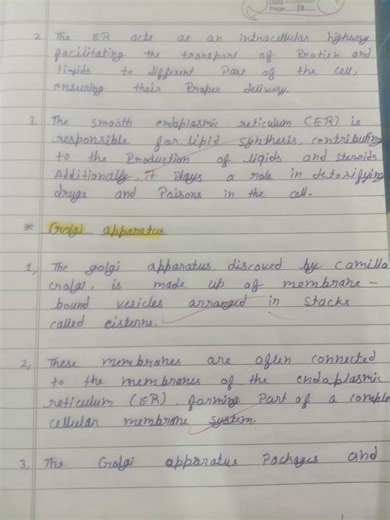 Date
Page 10
2. The ER acts as an intracellular highway
facilitating the transport of Protien and
lipids to different Part of the cell,
ensuring their Proper delivery.
3. The smooth endoplasmic reticulum (ER) is
responsible for lipid synthesis, contributing
to the Production of lipids and steroids
Additionally, it Plays a role in detoxifying
drugs and Poisons in the cell.
* Golgi apparatus
1, The golgi apparatus, discoved by Camillo
Golgi, is made up of membrane-
bound vesicles arranged in stacks
called cisterns.
2, These membranes are often connected
to the membranes of the endoplasmic
reticulum (ER), forming Part of a comple
cellular membrane system.
3. The Golgi apparatus Packages and